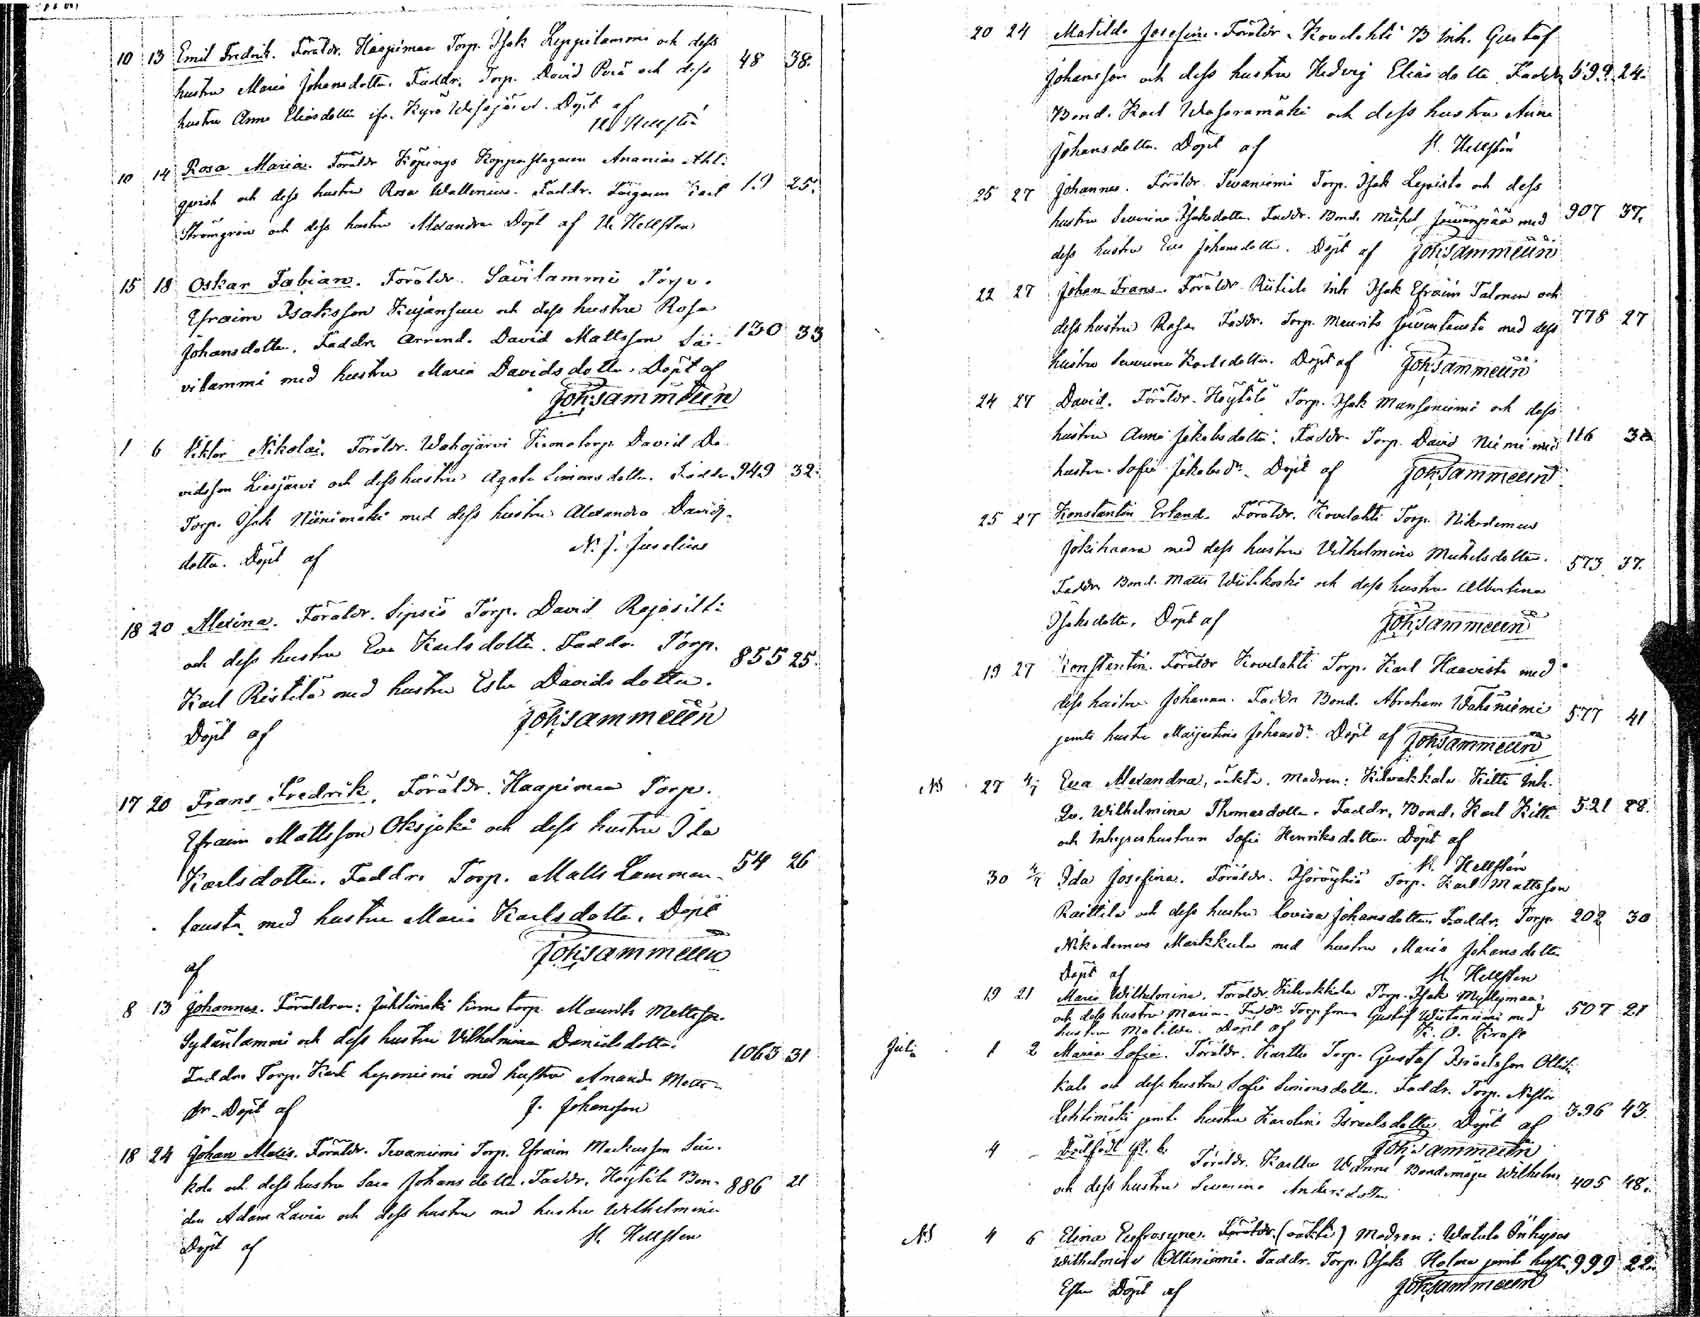 10 13 Emil Fredrik. Föräldr. Haapimaa Torp. Isak Leppilammi och dess 48 38.
hustru Maria Johansdotter. Faddr. Torp. David Perä och dess
hustru Anna Eliasdotter ifr. Kyrö Wesajärvi. Döpt af
Hellstén
10 14 Rosa Maria. Föräldr. Köpings Kopparslagaren Ananias Ahl- 19 25.
qvist och dess hustru Rosa Wallenius. Faddr. Färgaren Karl
Strömgren och dess hustru Alexandra Döpt af Hellsten
15 18 Oskar Fabian. Föräldr. Sävilammi Torp.
Efraim Isaksson Kujansuu och dess hustru Rosa
Johansdotter. Faddr. Arrend. David Mattsson Sä- 130 33
vilammi med hustru Maria Davidsdotter. Döpt af
Joh. Sammelin
1 6 Viktor Nikolai. Föräldr. Wahojärvi Kronotorp. David Da-
vidsson Liesjärvi och dess hustru Agata Simonsdotter. Faddr. 949 32.
Torp. Isak Niinimäki med dess hustru Alexandra Davids-
dotter. Döpt af N. J. Juselius
18 20 Alexina. Föräldr. Sipsiö Torp. David Rajasilt-
och dess hustru Eva Karlsdotter. Faddr. Torp. 855 25.
Karl Ristilä med hustru Ester Davidsdotter.
Döpt af Joh. Sammelin
17 20 Frans Fredrik. Föräldr. Haapimaa Torp.
Efraim Mattsson Oksjoki och dess hustru Ida
Karlsdotter. Faddr. Torp. Matts Lamman- 54 26
fausta med hustru Maria Karlsdotter. Döpt
af Joh. Sammelin
8 13 Johannes. Föräldrar: Jyllinmäki krono torp. Maurits Mattsson
Sydänlammi och dess hustru Vilhelmina Danielsdotter. 1063 31
Faddrar Torp. Karl Leponiemi med hustru Amanda Matts-
dr. Döpt af J. Johansson
18 24 Johan Alexis. Föräldr. Tevaniemi Torp. Efraim Markusson Sui-
kola och dess hustru Sara Johansdotter. Faddr. Höytilä Bon- 886 21
den Adam Lavia och dess hustru med hustru Wilhelmina
Döpt af Hellsten
20 24 Matilda Josefina. Föräldr. Kovelahti B Inh. Gustaf
Johansson och dess hustru Hedvig Eliasdotter. Faddr. 599 24.
Bond. Karl Wasaramäki och dess hustru Anna
Johansdotter. Döpt af Hellstén
25 27 Johannes. Föräldr. Tevaniemi Torp. Isak Lepistö och dess
hustru Severina Isaksdotter. Faddr. Bond. Michel Järvenpää med 907 37.
dess hustru Eva Johansdotter. Döpt af Joh. Sammelin
22 27 Johan Frans. Föräldr. Riitiala Inh. Isak Efraim Talonen och
dess hustru Rosa. Faddr. Torp. Maurits Järventausta med dess 778 27
hustru Severina Karlsdotter. Döpt af Joh. Sammelin
24 27 David. Föräldr. Höytilä Torp. Isak Mansoniemi och dess
hustru Anna Jakobsdotter. Faddr. Torp. David Niemi med 116
hustru Sofia Jakobsdr. Döpt af Joh. Sammelin
25 27 Konstantin Erland. Föräldr. Kovelahti Torp. Nikodemus
Jokihaara med dess hustru Vilhelmina Mickelsdotter. 573 37.
Faddr. Bond. Matts Wiitakoski och dess hustru Albertina
Isaksdotter. Döpt af Joh. Sammelin
19 27 Konstantin. Föräldr. Kovelahti Torp. Karl Haavisto med
dess hustru Johanna. Faddr. Bond. Abraham Wähäniemi 577 41
jemte hustru Marjastina Johansdr. Döpt af Joh. Sammelin
27 4/7 Eva Alexandra, oäkta. Modren: Kilvakkala Kittä Inh.
Wilhelmina Thomasdotter. Faddr. Bond. Karl Kittä 521 28.
och Inhyseshustrun Sofia Henriksdotter Döpt af
Hellstén
30 4/7 Ida Josefina. Föräldr. Torp. Karl Mattsson
Raittila och dess hustru Lovisa Johansdotter. Faddr. Torp. 202 30
Nikodemus Markkula med hustru Maria Johansdotter
Döpt af Hellsten
19 21 Maria Wilhelmina. Föräldr. Kilvakkala Torp. Isak Myllymaa
och dess hustru Maria. Faddr. Torp. Gustaf Wiitaniemi med 507 21
hustru Matilda. Döpt af
Juli 1 2 Maria Sofia. Föräldr. Karttu Torp. Gustaf Israelsson Ollila-
kala och dess hustru Sofia Simonsdotter. Faddr. Torp. Nestor
Lehtimäki jemte hustru Karolina Israelsdotter Döpt af 396 43.
Joh. Sammelin
4 - Dödfödt Föräldr. Karttu Bondemåge Wilhelm
och dess hustru Severina Andersdotter 405 48.
4 6 Elina Eufrosyne. Föräldr. (oäkta) Modren: Watula Inhyses
Wilhelmina Ollinniemi. Faddr. Torp. Isak Holma jemte hustru 999 22.
Ester Döpt af Joh. Sammelin